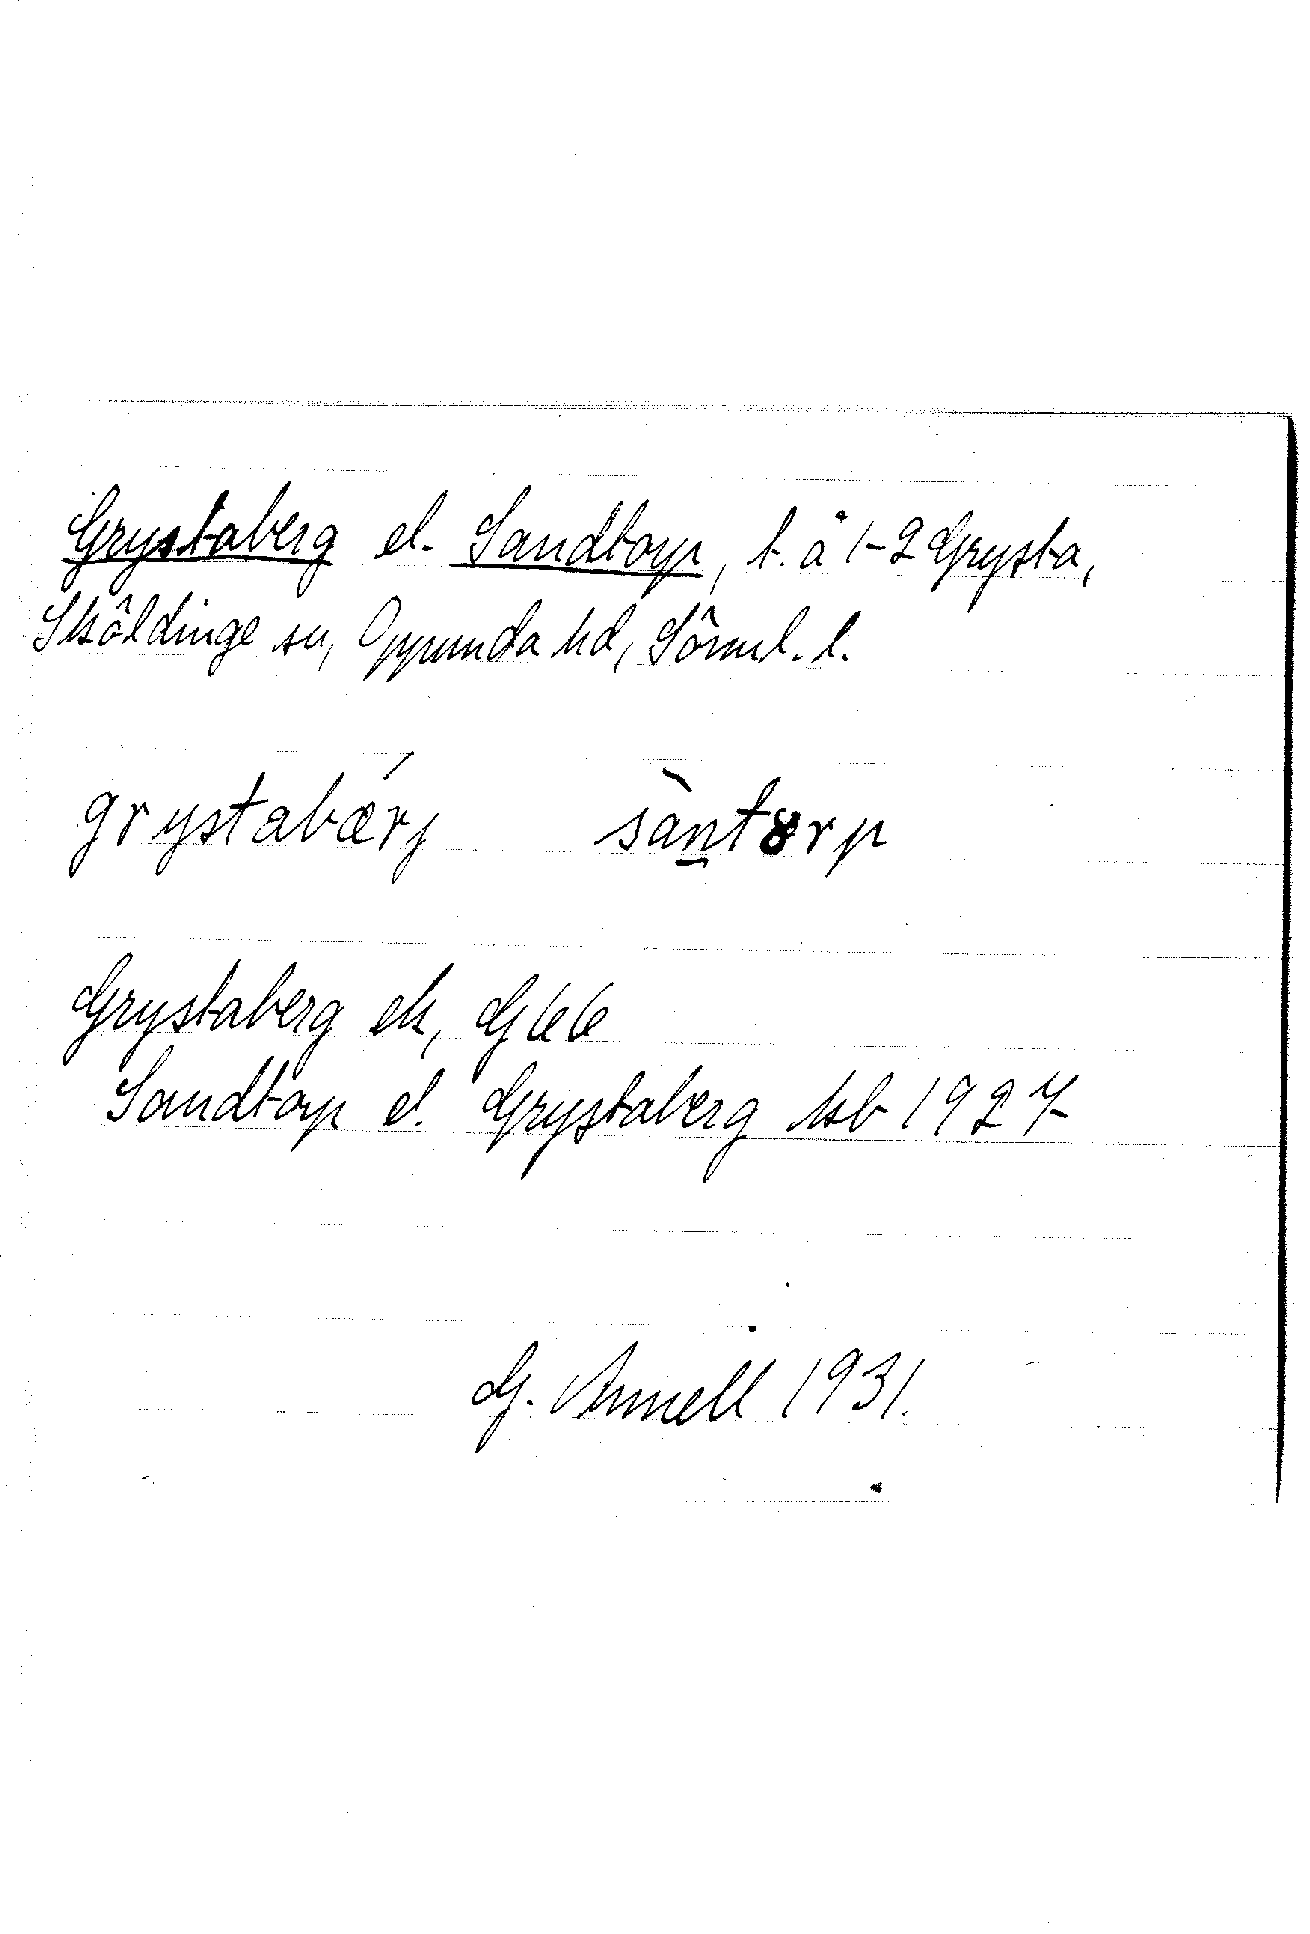 Grystaberg el. Sandtorp, t. å 1-2 Grysta,
Sköldinge sn, Oppunda hd, Sörml. l.
grystabærj sàntȣrp
Grystaberg ek, G 66
Sandtorp el. Grystaberg kb 1927
G. Annell 1931.